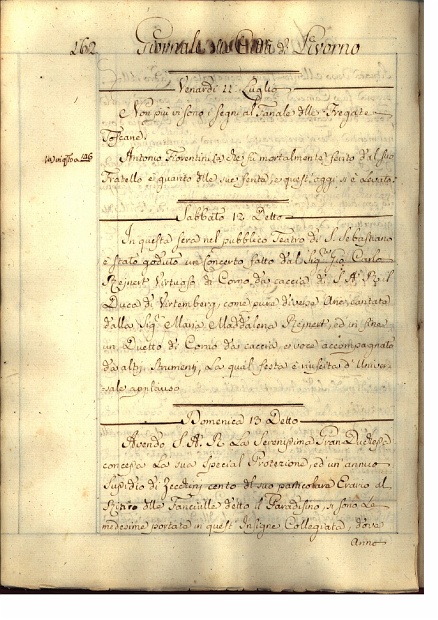 162 Giornale di Livorno
Venerdì 11 Luglio
Non più vi sono i segni al Fanale delle Fregate
Toscane.
Antonio Fiorentini, che fù mortalmente ferito dal suo
Fratello è guarito dalle sue ferite, e quest'oggi si è
Sabbato 12 Detto
In questa sera nel pubblico Teatro di S. Sebastiano
è stato goduto un Concerto fatto dal Sig.r Gio Carlo
Virtuoso di Corno da caccia di S. A. R. il
Duca di Virtemberg, come pure diverse Arie cantate
dalla Sig.ra Maria Maddalena ed in fine
un Duetto di Corno da caccia, e voce accompagnato
da altri Strumenti, La qual festa è riuscita d'Univer-
sale applauso.
Domenica 13 Detto
Avendo S. A. R. La Serenissima Gran Duchessa
concessa La sua Special Protezione, ed un annuo
Susidio di Zecchini cento del suo particolare Erario al
delle Fanciulle detto il Paradisino, si sono Le
medesime portate in quest' Insigne Collegiata, dove
Anno